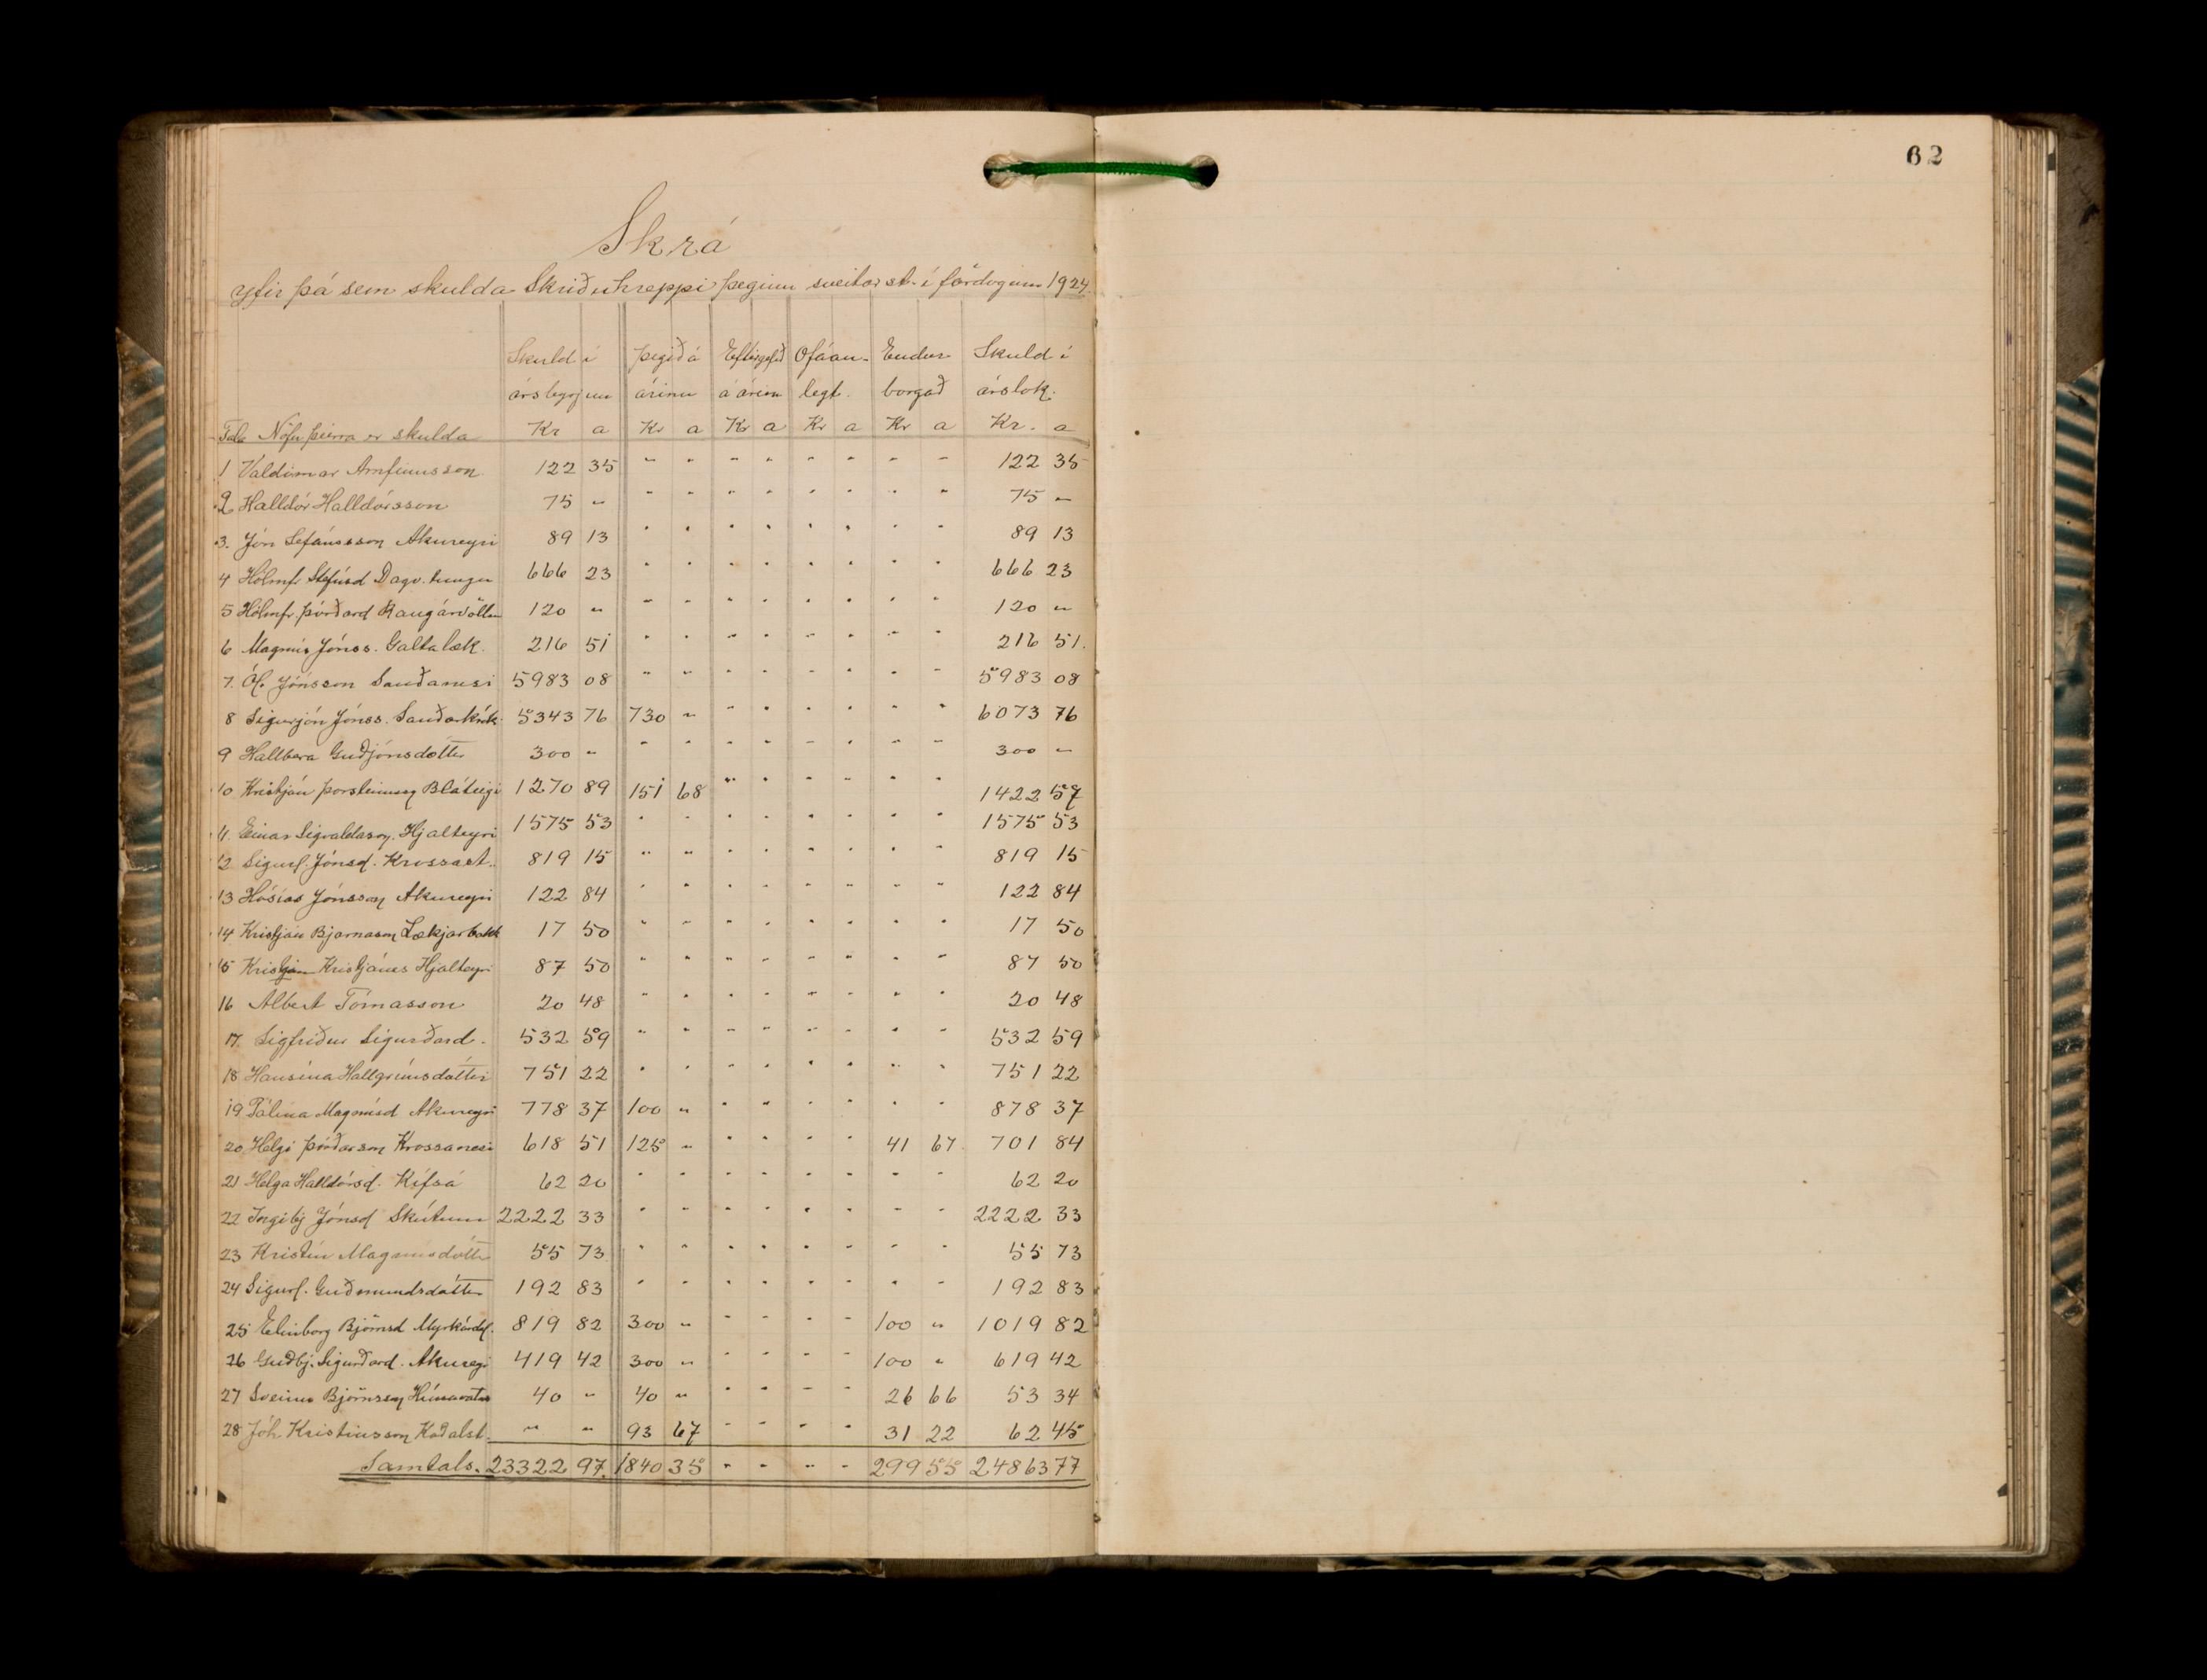 62
Skrá
yfir þá sem skulda Skriðuhreppi þeginn sveitarst. í fardögum 1924.
Skuld í þegið á Eftirgefið Ófáan- Endur- Skuld í
ársbyrjun árinu á árinu legt. borgað árslok.
Tala Nöfn þeirra er skulda Kr a Kr a Kr a Kr a Kr a Kr. a
1 Valdimar Arnfinnsson 122 35 " " " " " " " " 122 35
2 Halldór Halldórsson 75 " " " " " " " " " 75 "
3. Jón Sefánsson Akureyri 89 13 " " " " " " " " 89 13
4 Hólmfr Stefásd Dagv.tungu 666 23 " " " " " " " " 666 23
5 Hólmfr. Þórðard Rangárvöllum 120 " " " " " " " " " 120 "
6 Magnús Jónss. Galtalæk. 216 51 " " " " " " " " 216 51.
7. Ól. Jónsson Sauðanesi 5983 08 " " " " " " " " 5983 08
8 Sigurjón Jónss. Sauðarkrók 5343 76 730 " " " " " " " 6073 76
9 Hallbera Guðjónsdóttir 300 " " " " " " " " " 300 "
10 Kristján Þorsteinsson Bláteigi 1270 89 151 68 " " " " " " 1422 57
11. Einar Sigvaldason. Hjalteyri 1575 53 " " " " " " " " 1575 53
12 Sigurl. Jónsd. Krossast. 819 15 " " " " " " " " 819 15
13 Hósías Jónsson Akureyri 122 84 " " " " " " " " 122 84
14 Kristján Bjarnason Lækjarbakk 17 50 " " " " " " " " 17 50
15 Kristján Kristjánss Hjalteyri 87 50 " " " " " " " " 87 50
16 Albert Tómasson 20 48 " " " " " " " " 20 48
17. Sigfríður Sigurðard. 532 59 " " " " " " " " 532 59
18 Hansína Hallgrímsdóttir 751 22 " " " " " " " " 751 22
19 Pálína Magnúsd Akureyri 778 37 100 " " " " " " " 878 37
20 Helgi Þórðarson Krossanesi 618 51 125 " " " " " 41 67 701 84
21 Helga Halldórsd. Kífsá 62 20 " " " " " " " " 62 20
22 Ingibj Jónsd Skútum 2222 33 " " " " " " " " 2222 33
23 Kristín Magnúsdóttir 55 73 " " " " " " " " 55 73
24 Sigurl. Guðmundsdóttir 192 83 " " " " " " " " 192 83
25 Elinborg Björnsd Myrkárdal. 819 82 300 " " " " " 100 " 1019 82
26 Guðbj. Sigurðard. Akureyri 419 42 300 " " " " " 100 " 619 42
27 Sveinn Björnsson Húnavatns 40 " 40 " " " " " 26 66 53 34
28 Jóh Kristinsson Koðalst. " " 93 67 " " " " 31 22 62 45
Samtals. 23322 97. 1840 35 " " " " 299 55 24863 77